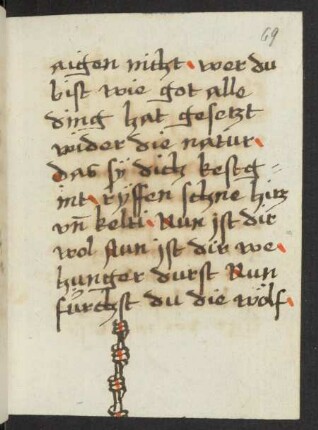 69
aigen nicht. wer du
bist wie got alle
ding hat gesetzt
wider die natur.
das sy dich kestg=
int. ryffen schne hitz
vn̄ kelti. Nun ist dir
wol Nun ist dir we.
hunger durst Nun
fürchst du die wölf.